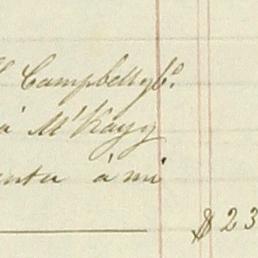 Campbell y Co.
á McKay y
enta á mi
$23